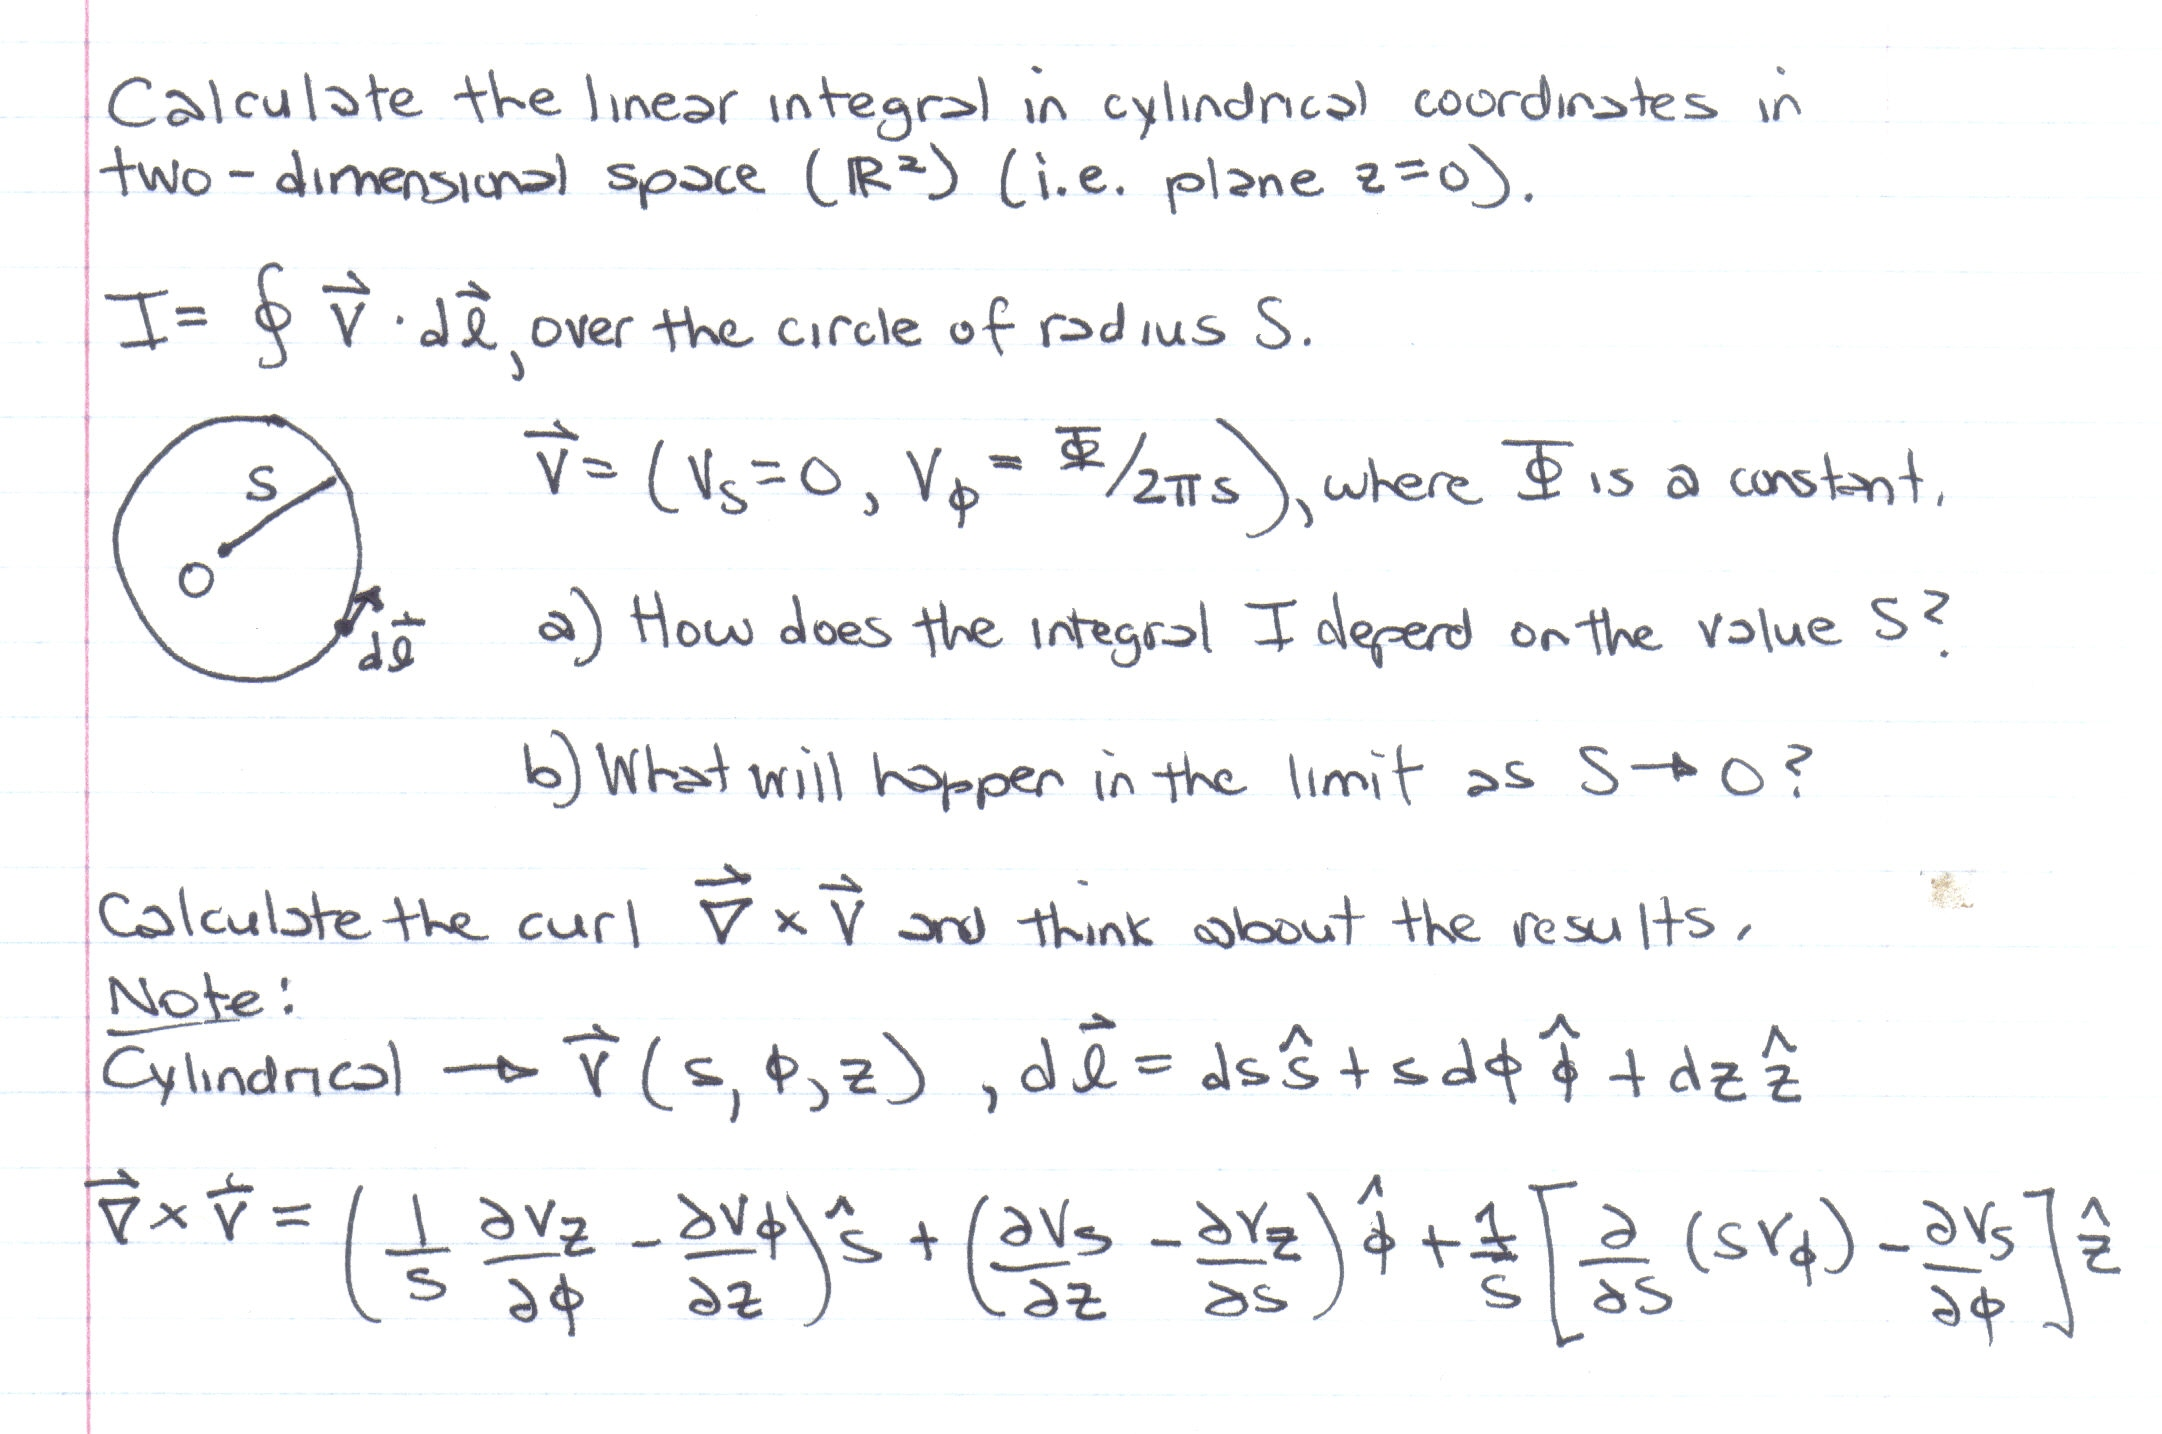 Calculate the linear integral in cylindrical coordinates in
two-dimensional space (ℝ²) (i.e. plane z=0).
I = ∮ v⃗ · dl⃗, over the circle of radius S.
S
O
dl⃗
v⃗ = (v_s = 0, v_φ = Φ/2πs), where Φ is a constant.
a) How does the integral I depend on the value S?
b) What will happen in the limit as S → 0?
Calculate the curl ∇⃗ × v⃗ and think about the results.
Note:
Cylindrical → v⃗ (s, φ, z) , dl⃗ = ds ŝ + s dφ φ̂ + dz ẑ
∇⃗ × v⃗ = (1/s ∂v_z/∂φ - ∂v_φ/∂z) ŝ + (∂v_s/∂z - ∂v_z/∂s) φ̂ + 1/s [∂/∂s (s v_φ) - ∂v_s/∂φ] ẑ